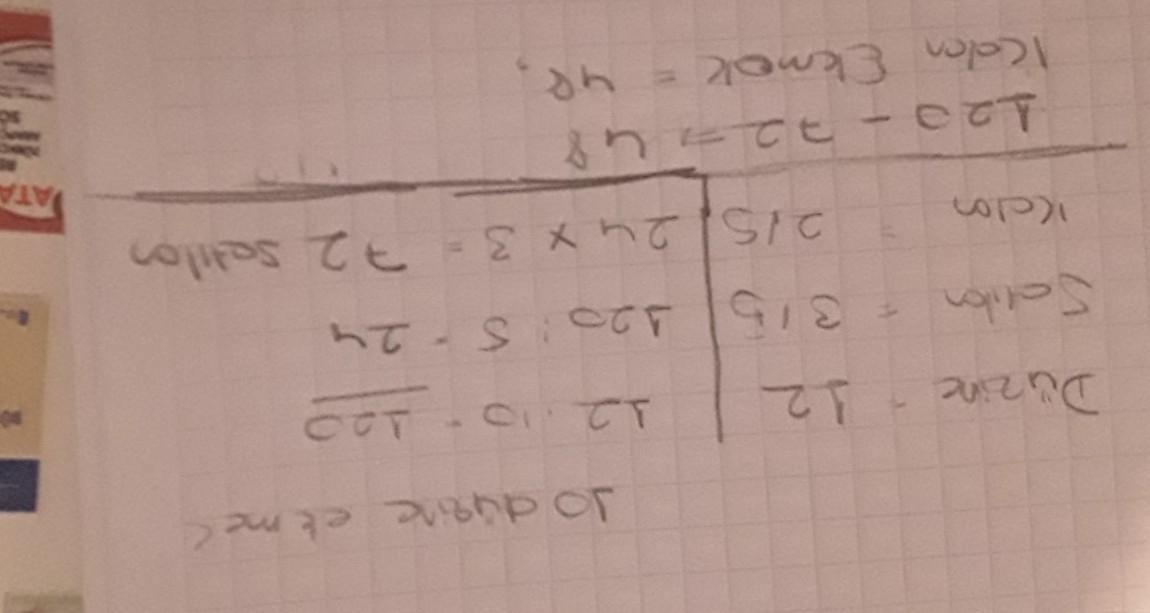 10 düzine ekmek
Düzine = 12
12 . 10 = 120
Satılan = 3/5
120 : 5 = 24
Kalan = 2/5
24 x 3 = 72 satılan
120 - 72 = 48
Kalan Ekmek = 48,
ATA